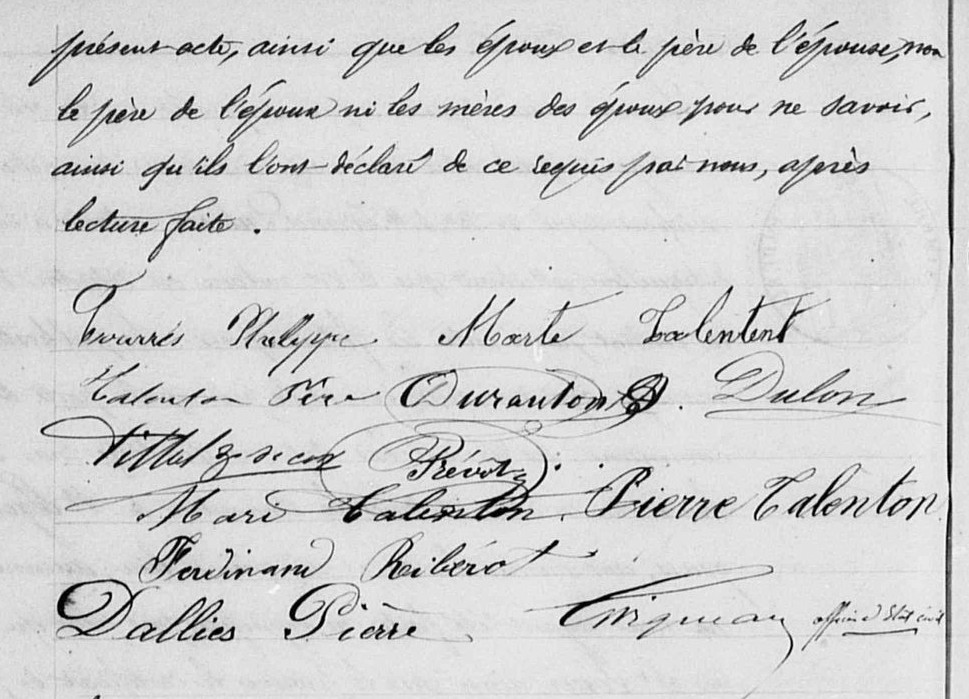 présent acte, ainsi que les époux et le père de l'épouse, non
le père de l'époux ni les mères des époux pour ne savoir,
ainsi qu'ils l'ont déclaré de ce requis par nous, après
lecture faite.
Philippe Marte Talentent
Talenton Père Duranton Dulon
Prévot
Marc Talenton Pierre Talenton
Ferdinand Ribérot
Dallies Pierre officier d'Etat civil